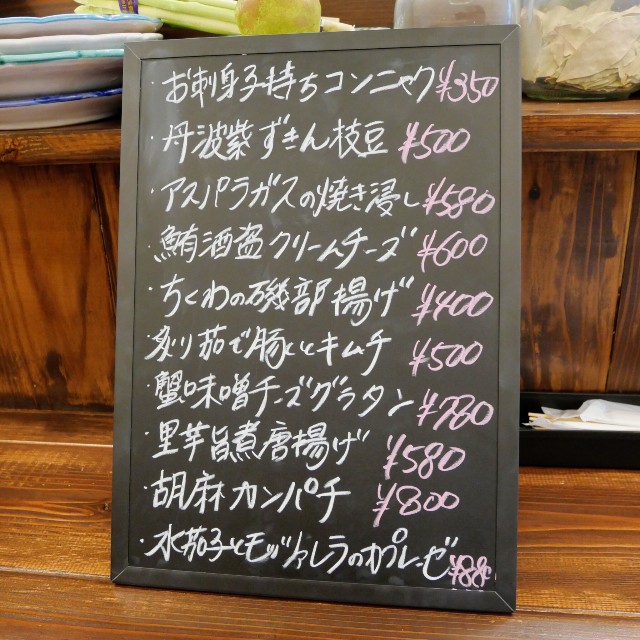 ・お刺身子持ちコンニャク ¥350
・丹波紫ずきん枝豆 ¥500
・アスパラガスの焼き浸し ¥580
・鮪酒盗クリームチーズ ¥600
・ちくわの磯部揚げ ¥400
炙り茹で豚とキムチ ¥500
・蟹味噌チーズグラタン ¥780
・里芋旨煮唐揚げ ¥580
・胡麻カンパチ ¥800
・水茄子とモッツァレラのカプレーゼ